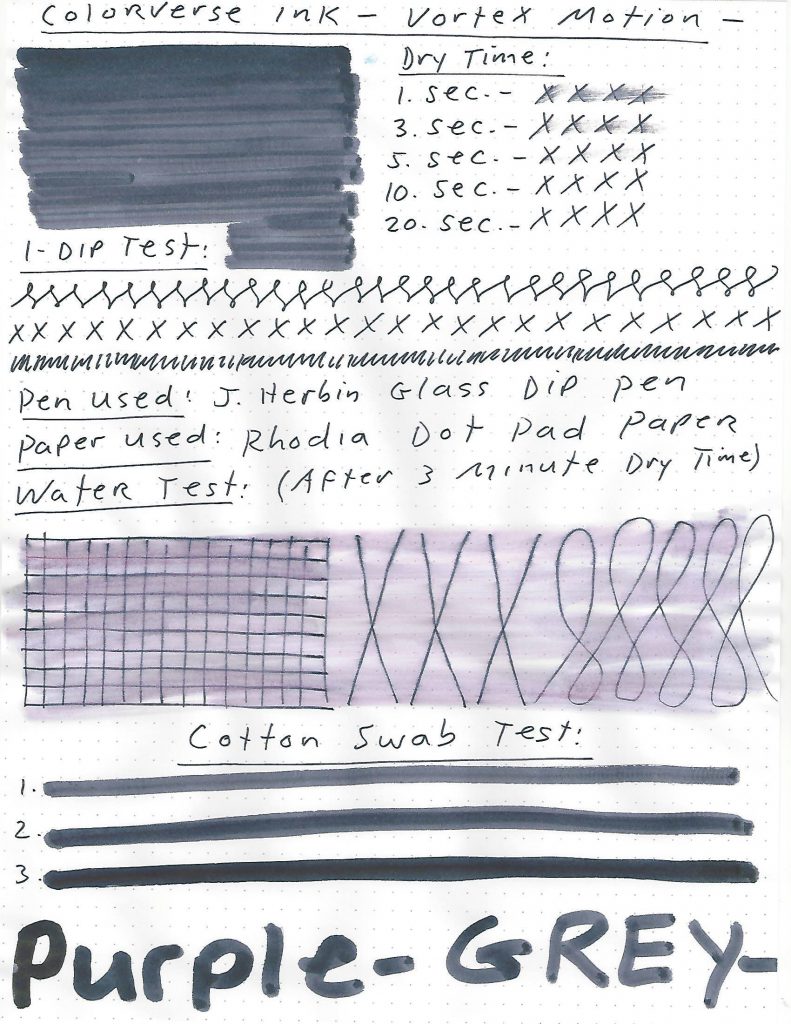 Colorverse Ink - Vortex Motion -
Dry Time:
1. sec. - X X X X
3. sec. - X X X X
5. sec. - X X X X
10. sec. - X X X X
20. sec. - X X X X
1-Dip Test:
X X X X X X X X X X X X X X X X X X X X X X X X X X X
Pen used: J. Herbin Glass Dip pen
Paper used: Rhodia Dot Pad Paper
Water Test: (After 3 Minute Dry Time)
X X X
Cotton Swab Test:
1.
2.
3.
Purple-GREY-